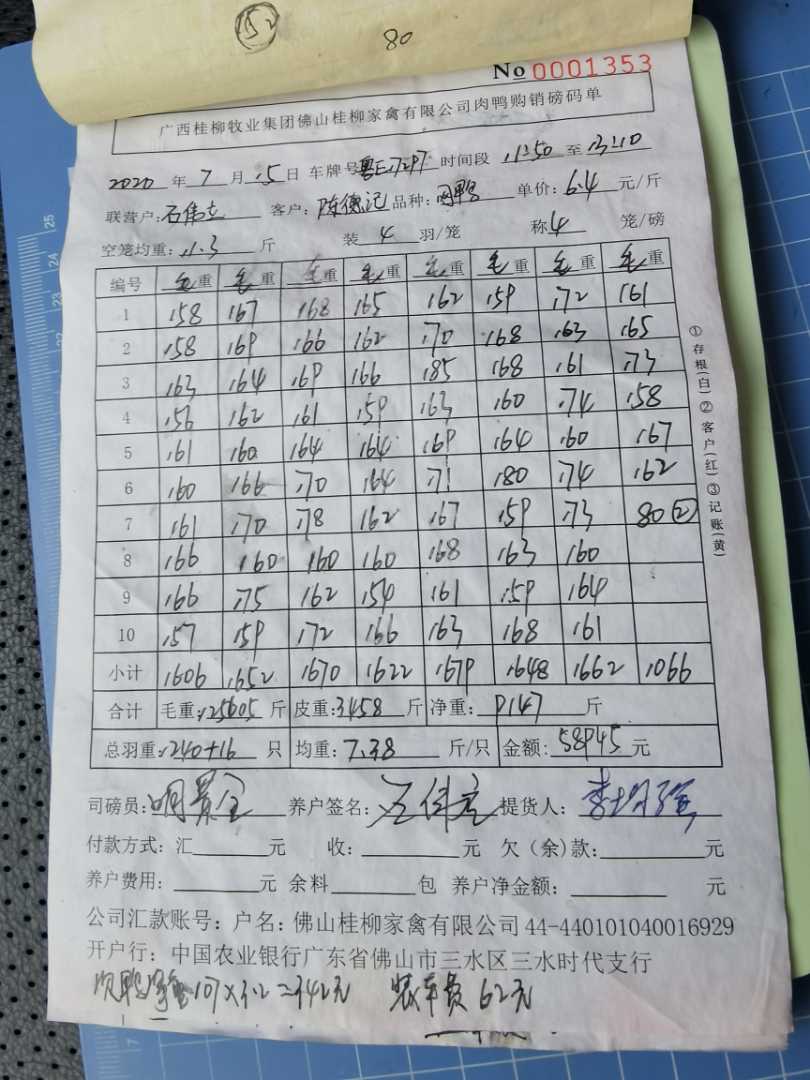 152
80
No 0001353
广西桂柳牧业集团佛山桂柳家禽有限公司肉鸭购销磅码单
2020 年 7 月 15 日 车牌号 粤E27297 时间段 11:50 至 13:10
联营户: 石伟立 客户: 陈德记 品种: 肉鸭 单价: 6.4 元/斤
空笼均重: 21.3 斤 装 4 羽/笼 称 4 笼/磅
编号 毛重 毛重 毛重 毛重 毛重 毛重 毛重 毛重
1 158 167 168 165 162 159 172 161
2 158 169 166 162 170 168 163 165
3 163 164 169 166 185 168 161 173
4 156 162 161 159 163 160 174 158
5 161 160 164 164 169 164 160 167
6 160 166 170 164 171 180 174 162
7 161 170 178 162 167 159 173 80②
8 166 160 160 160 168 163 160
9 166 175 162 154 161 159 164
10 157 159 172 166 163 168 161
小计 1606 1652 1670 1622 1679 1648 1662 1066
合计 毛重: 12605 斤 皮重: 3458 斤 净重: 9147 斤
总羽重: 1240+16 只 均重: 7.38 斤/只 金额: 58945 元
司磅员: 养户签名: 提货人:
付款方式: 汇 元 收: 元 欠(余)款: 元
养户费用: 元 余料 包 养户净金额: 元
公司汇款账号: 户名: 佛山桂柳家禽有限公司 44-440101040016929
开户行: 中国农业银行广东省佛山市三水区三水时代支行
次鸭 107×3.2=342元 装车费 62元
①存根(白)②客户(红)③记账(黄)